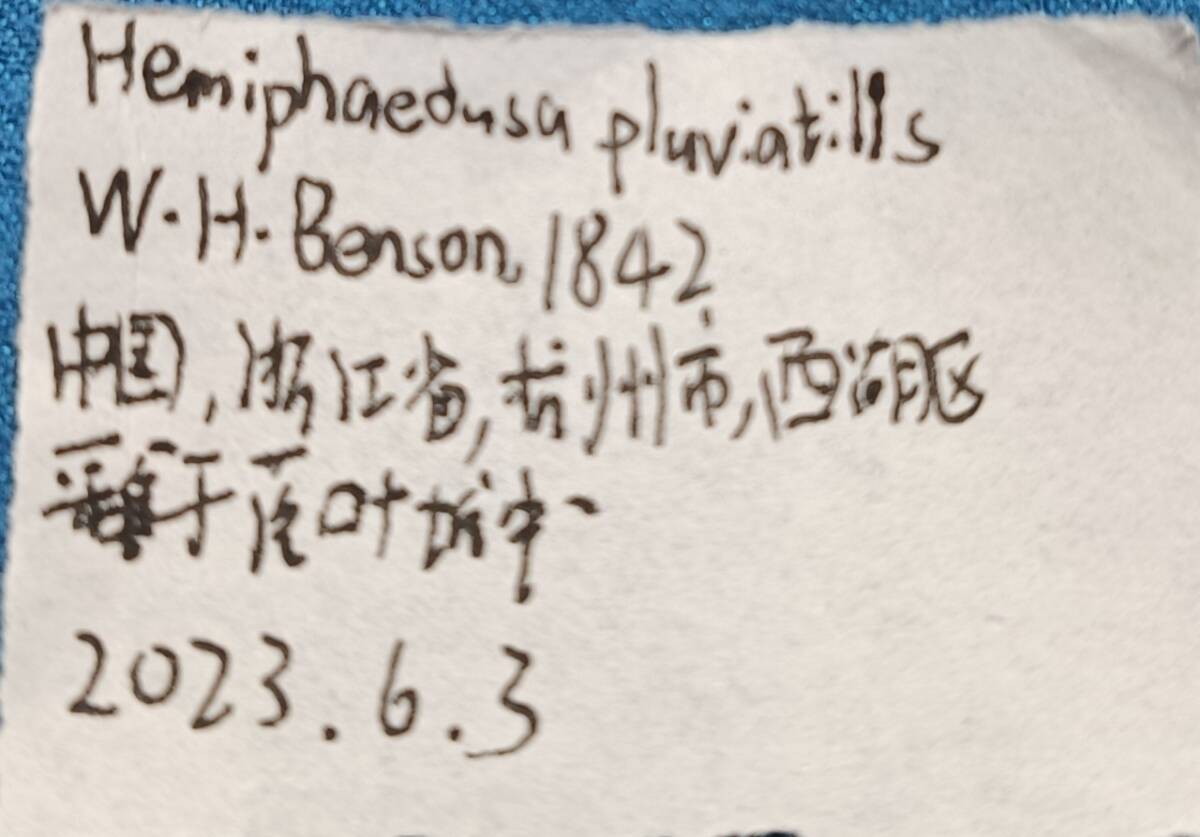 Hemiphaedusa pluviatilis
W.H. Benson, 1842
中国,浙江省,杭州市,西湖区
采集于腐叶堆中
2023.6.3